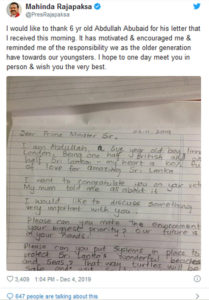 Mahinda Rajapaksa
@PresRajapaksa
I would like to thank 6 yr old Abdullah Abubaid for his letter that
I received this morning. It has motivated & encouraged me &
reminded me of the responsibility we as the older generation
have towards our youngsters. I hope to one day meet you in
person & wish you the very best.
Dear Prime Minister Sir,
I am Abdullah, a six year old boy
London. Being one half British and
half Sri Lankan - my heart is
of love for amazing Sri Lanka
I want to congratulate you on your
My mum told me all about it.
I would like to discuss something
very important with you.
Please can you make the environment
your biggest priority? Our future is
your hands.
Please can you put in place
protect Sri Lanka's wonderful
and seas? That way, turtles will
3,408
1:04 PM - Dec 4, 2019
647 people are talking about this